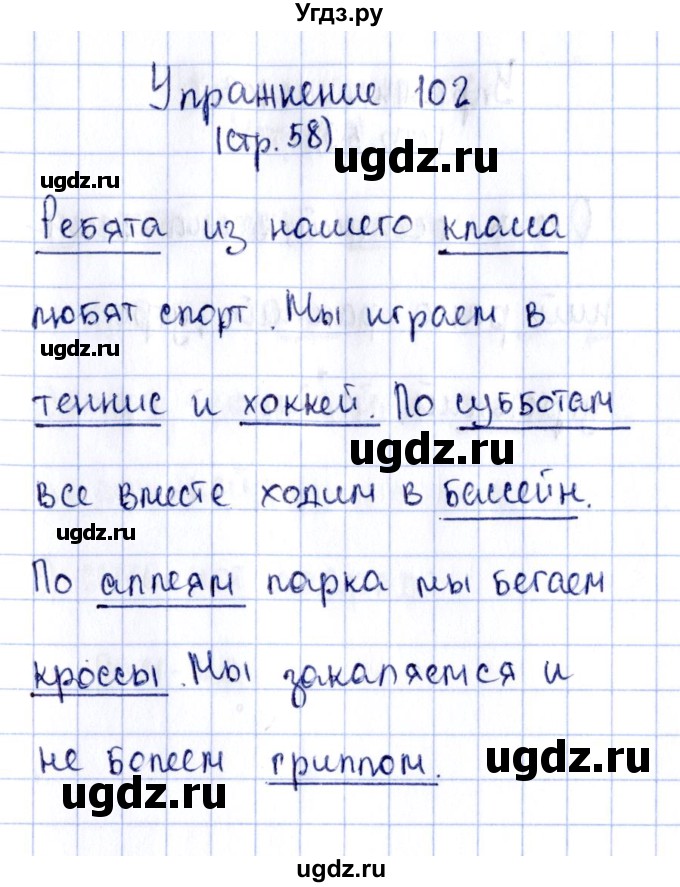 Угдз.ру
Упражнение 102
(стр. 58)
ugdz.ru
ugdz.ru
Ребята из нашего класса
любят спорт. Мы играем в
ugdz.ru
теннис и хоккей. По субботам
ugdz.ru
все вместе ходим в бассейн.
ugdz.ru
По аллеям парка мы бегаем
кроссы. Мы закаляемся и
не болеем гриппом.
ugdz.ru
ugdz.ru
ugdz.ru